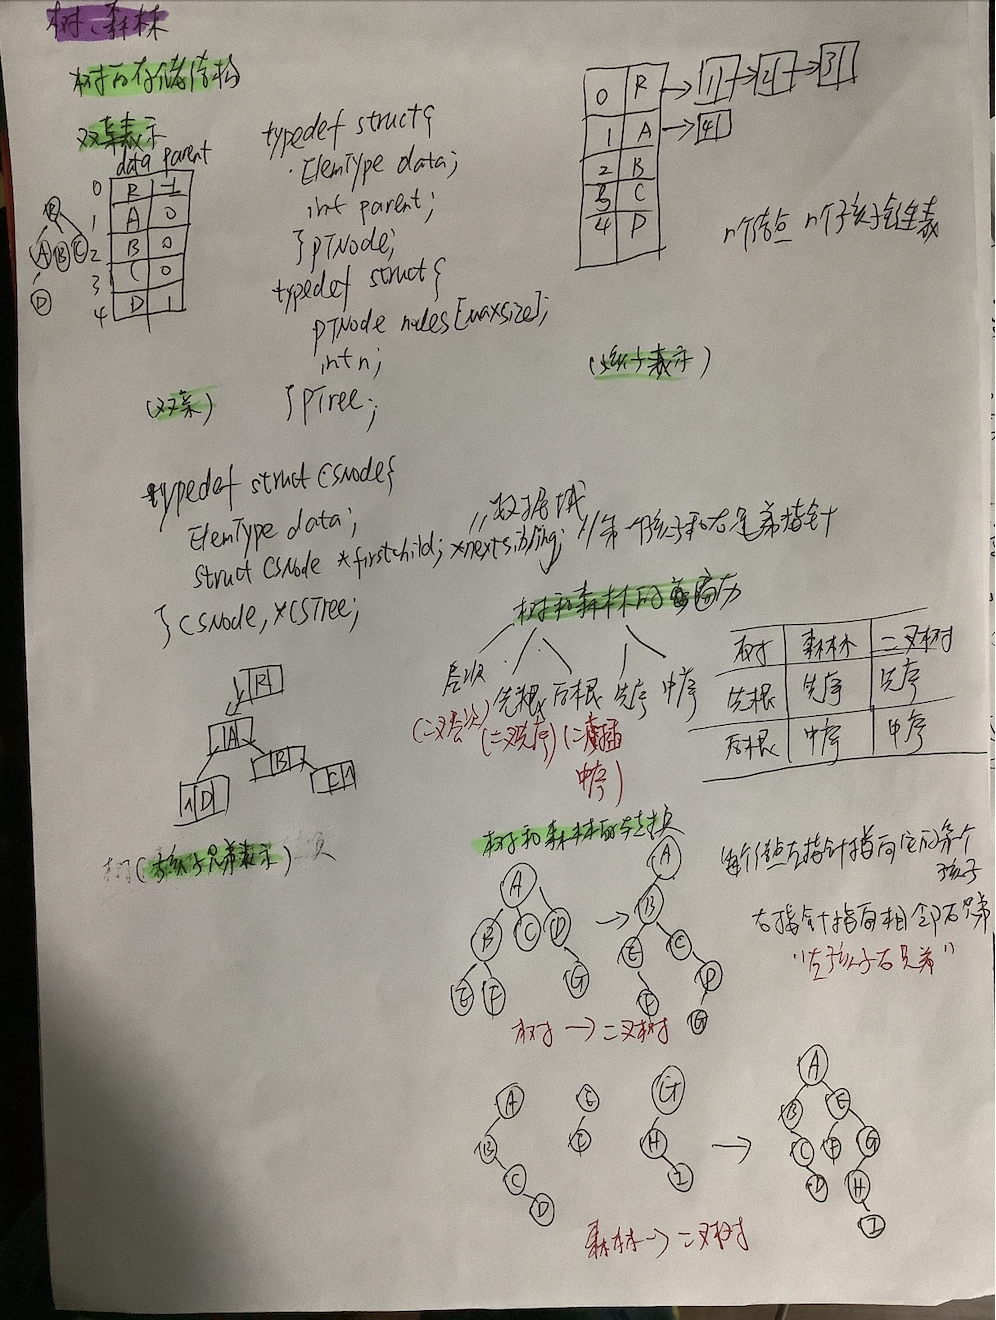 树、森林
树的存储结构
双亲表示
data parent
0 R -1
1 A 0
2 B 0
3 C 0
4 D 1
R
A B C
D
(双亲)
typedef struct{
ElemType data;
int parent;
}PTNode;
typedef struct{
PTNode nodes[maxsize];
int n;
}PTree;
0 R → 1 → 2 → 3
1 A → 4
2 B
3 C
4 D
n个结点 n个孩子链表
(孩子表示)
typedef struct CSNode{
ElemType data; //数据域
struct CSNode *firstchild; *nextsibling; //第一个孩子和右兄弟指针
}CSNode,*CSTree;
R
A
B
D
C
(孩子兄弟表示)
树和森林的遍历
层次 先根 后根 先序 中序
(二叉层次) (二叉先序) (二叉
中序)
树 森林 二叉树
先根 先序 先序
后根 中序 中序
树和森林的转换
A
B C D
E F G
→
A
B
E C
F D
G
树→二叉树
每个结点左指针指向它的第一个
孩子
右指针指向相邻右兄弟
"左孩子右兄弟"
A
B
C
D
E
F
G
H
I
→
A
B E
C F G
D H
I
森林→二叉树